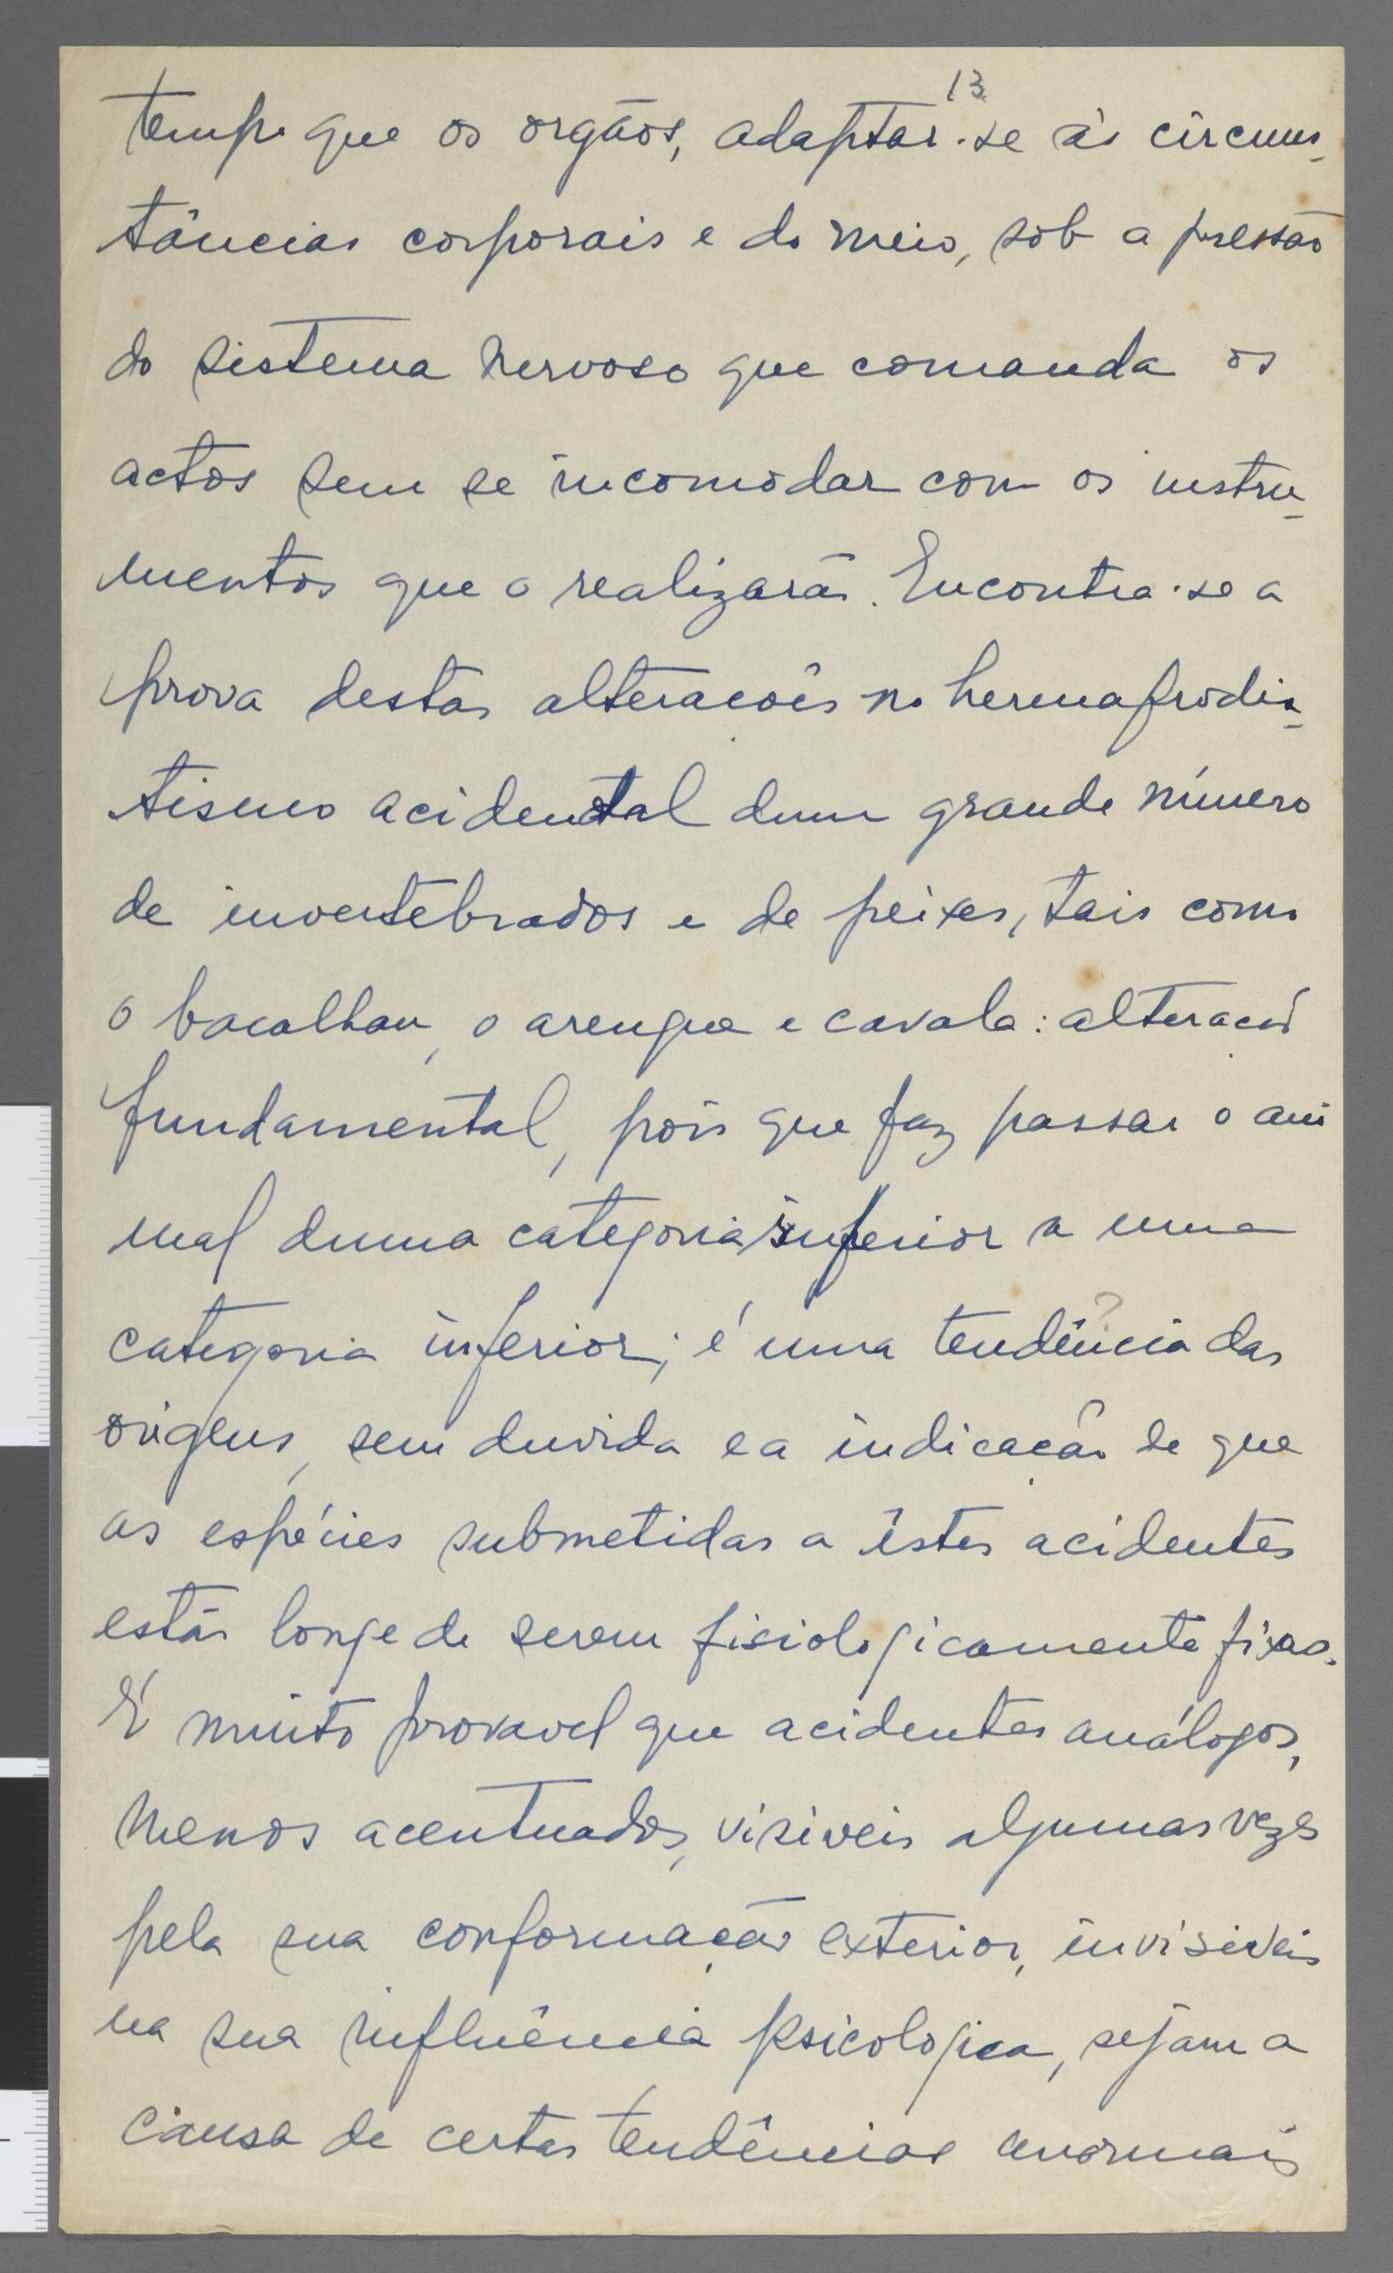 13
tempo que os orgãos, adaptar-se às circuns-
tâncias corporais e do meio, sob a pressão
do sistema nervoso que comanda os
actos sem se incomodar com os instru-
mentos que o realizarão. Encontra-se a
prova destas alteracoẽs no hermafrodi-
tismo acidental dum grande número
de invertebrados e de peixes, tais como
o bacalhau, o arenque e cavala: alteração
fundamental, pois que faz passar o ani
mal duma categoria superior a uma
categoria inferior; é uma tendência das
origens, sem duvida e a indicacão de que
as espécies submetidas a êstes acidentes
estão longe de serem fisiologicamente fixas.
É muito provavel que acidentes análogos,
menos acentuados, visiveis algumas vezes
pela sua conformação exterior, invisiveis
na sua influência psicologica, sejam a
causa de certas tendências anormais